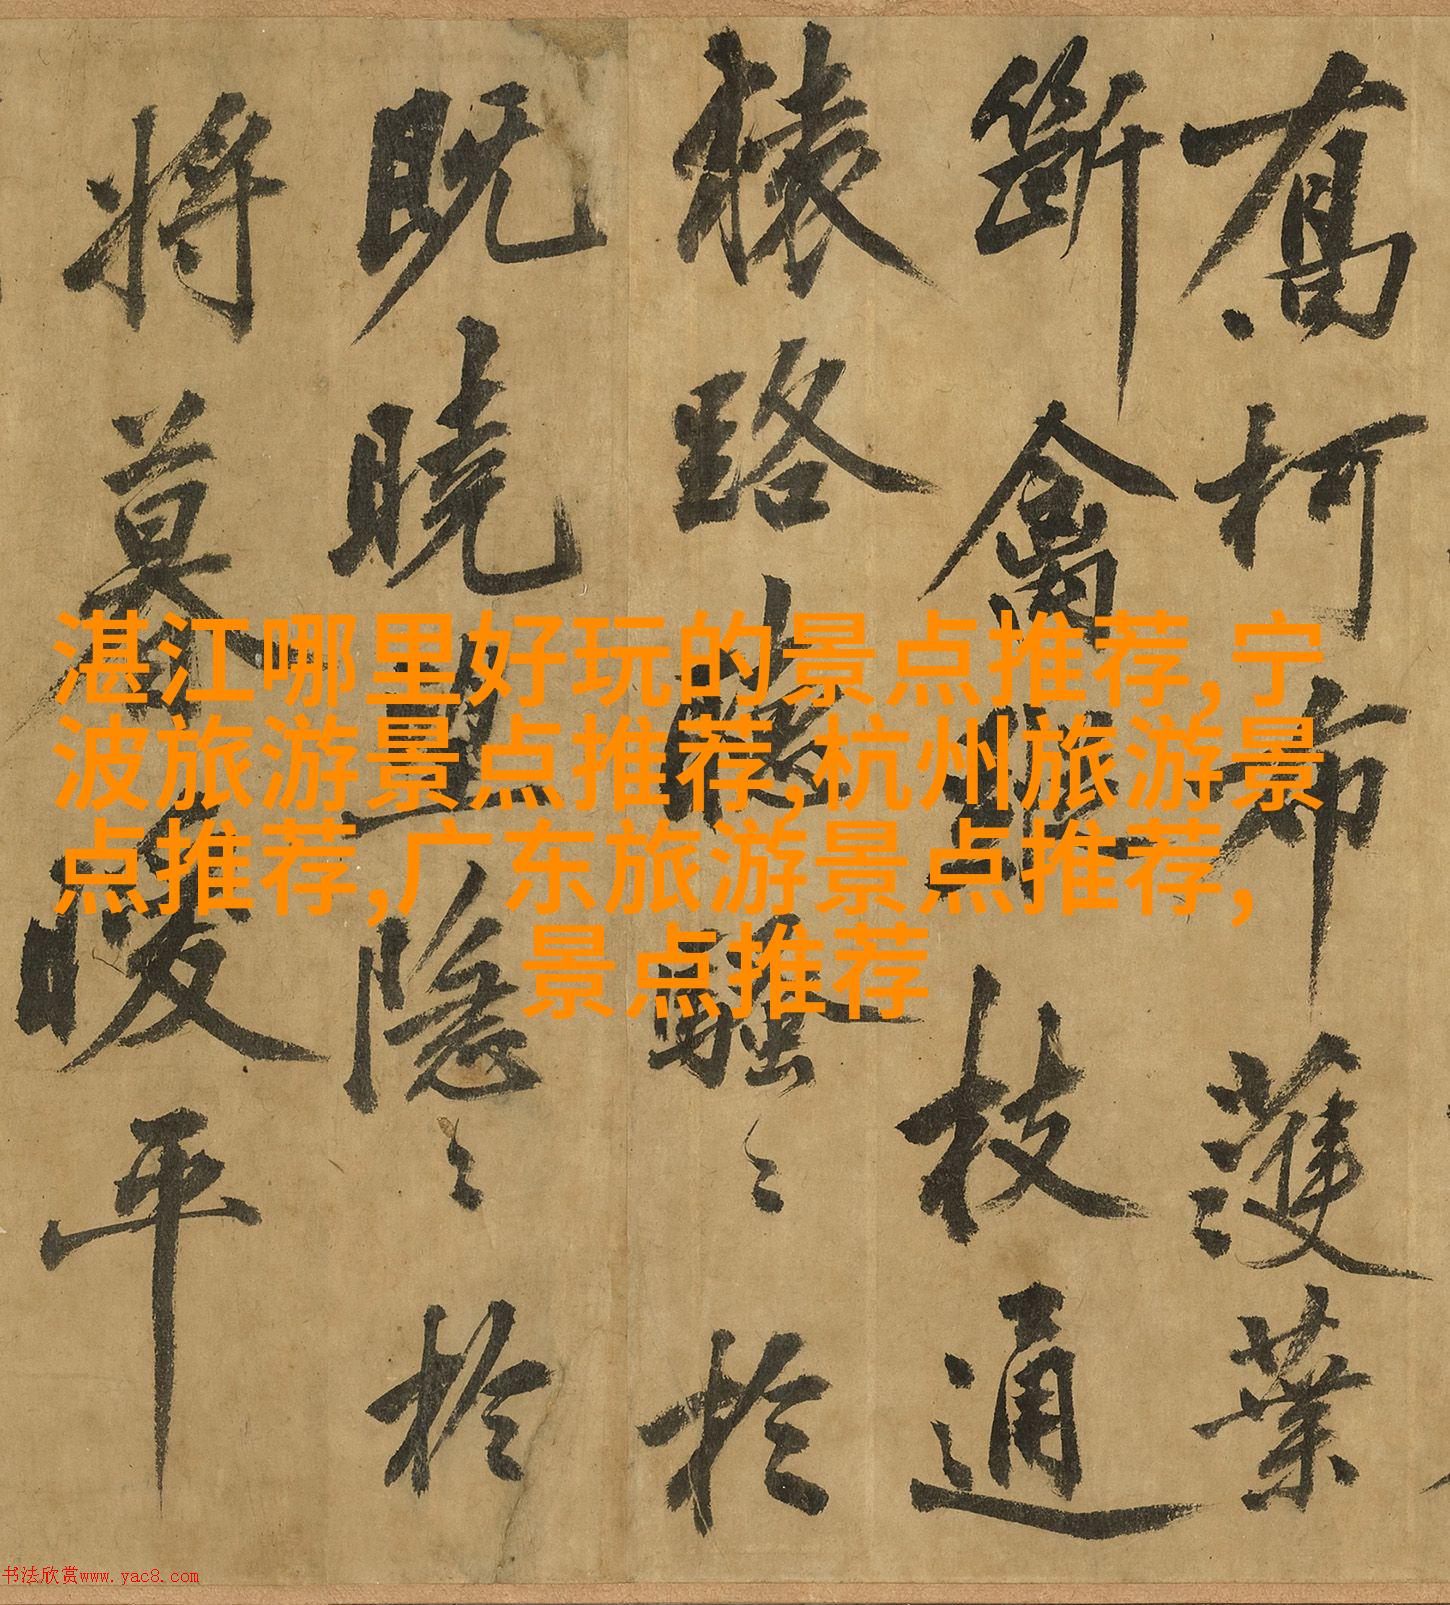 喬柯布濩葉
斷禽聯枝通
猿路聽騷〻於
既曉望隱〻於
將暮曖平
湛江哪里好玩的景点推荐,宁
波旅游景点推荐,杭州旅游景
点推荐,广东旅游景点推荐,
景点推荐
书法欣赏www.yac8.com